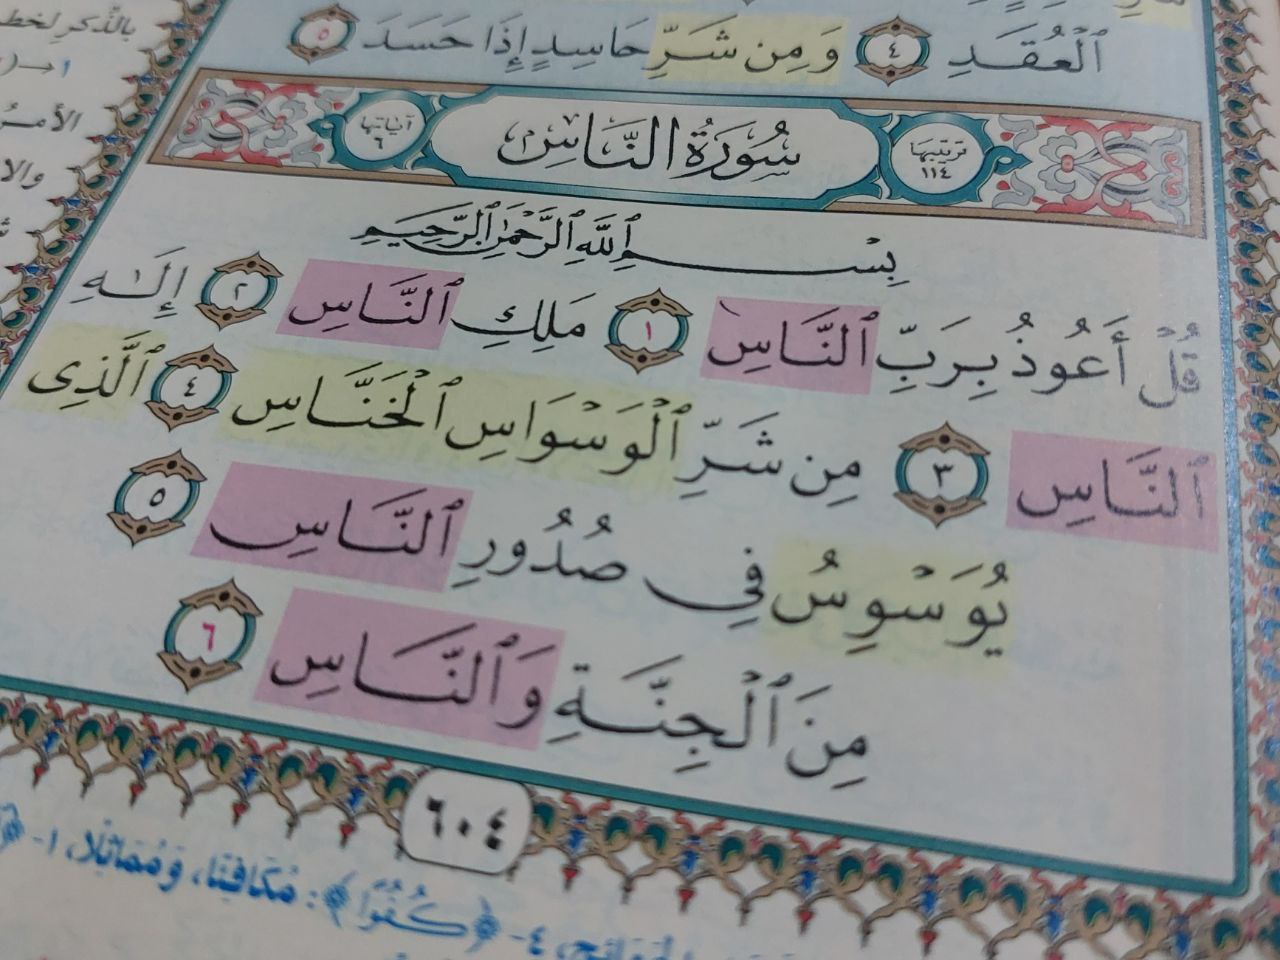 بالذكر لخط
الأمر
والا
ٱلۡعُقَدِ ٤ وَمِن شَرِّ حَاسِدٍ إِذَا حَسَدَ ٥
ترتيبها ١١٤ سُورَةُ النَّاسِ آياتها ٦
بِسۡمِ ٱللَّهِ ٱلرَّحۡمَٰنِ ٱلرَّحِيمِ
قُلۡ أَعُوذُ بِرَبِّ ٱلنَّاسِ ١ مَلِكِ ٱلنَّاسِ ٢ إِلَٰهِ
ٱلنَّاسِ ٣ مِن شَرِّ ٱلۡوَسۡوَاسِ ٱلۡخَنَّاسِ ٤ ٱلَّذِى
يُوَسۡوِسُ فِي صُدُورِ ٱلنَّاسِ ٥
مِنَ ٱلۡجِنَّةِ وَٱلنَّاسِ ٦
٦٠٤
٤- ﴿كُفُوًا﴾: مُكَافِئًا، وَمُمَاثِلًا، ١-